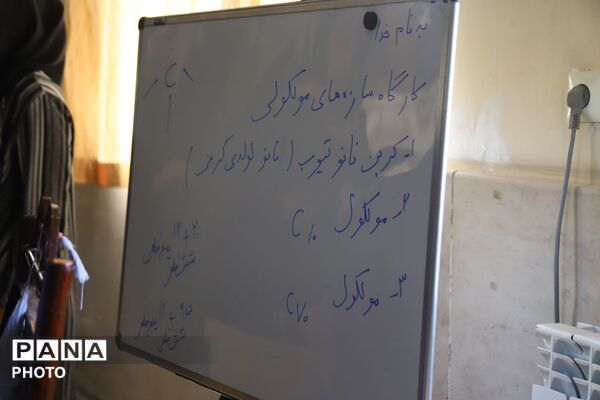 به نام خدا
کارگاه سازه‌های مولکولی
۱- کربن نانو تیوب ( نانو لوله‌ی کربنی )
۲- مولکول C₆₀
۳- مولکول C₇₀
۲۰ + ۱۲ پنج ضلعی
شش ضلعی
۲۵ + ۱۲ پنج ضلعی
شش ضلعی
PANA
PHOTO